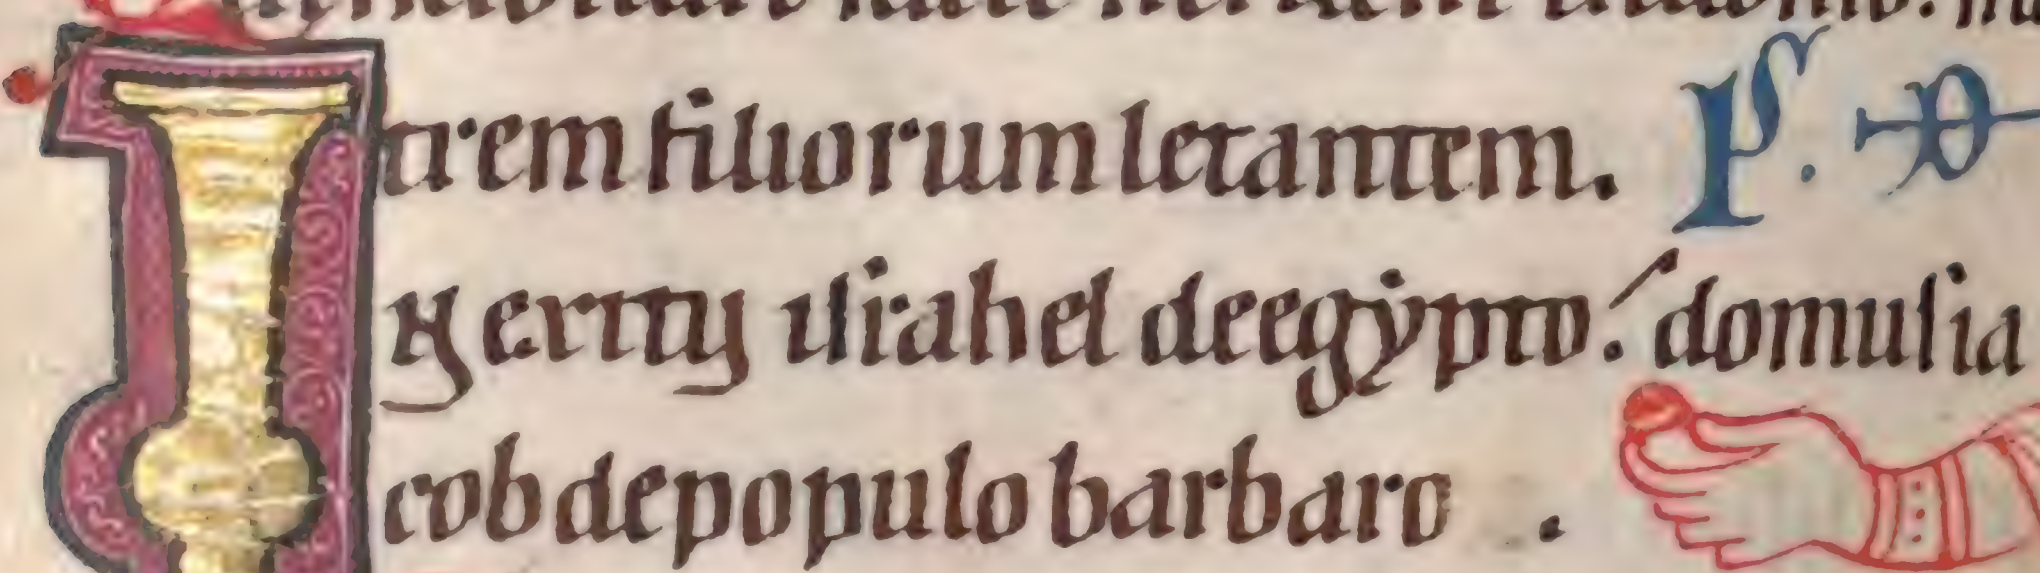 trem filiorum letantem. Ps.
IN exitu israhel de egypto: domus ia
cob de populo barbaro.